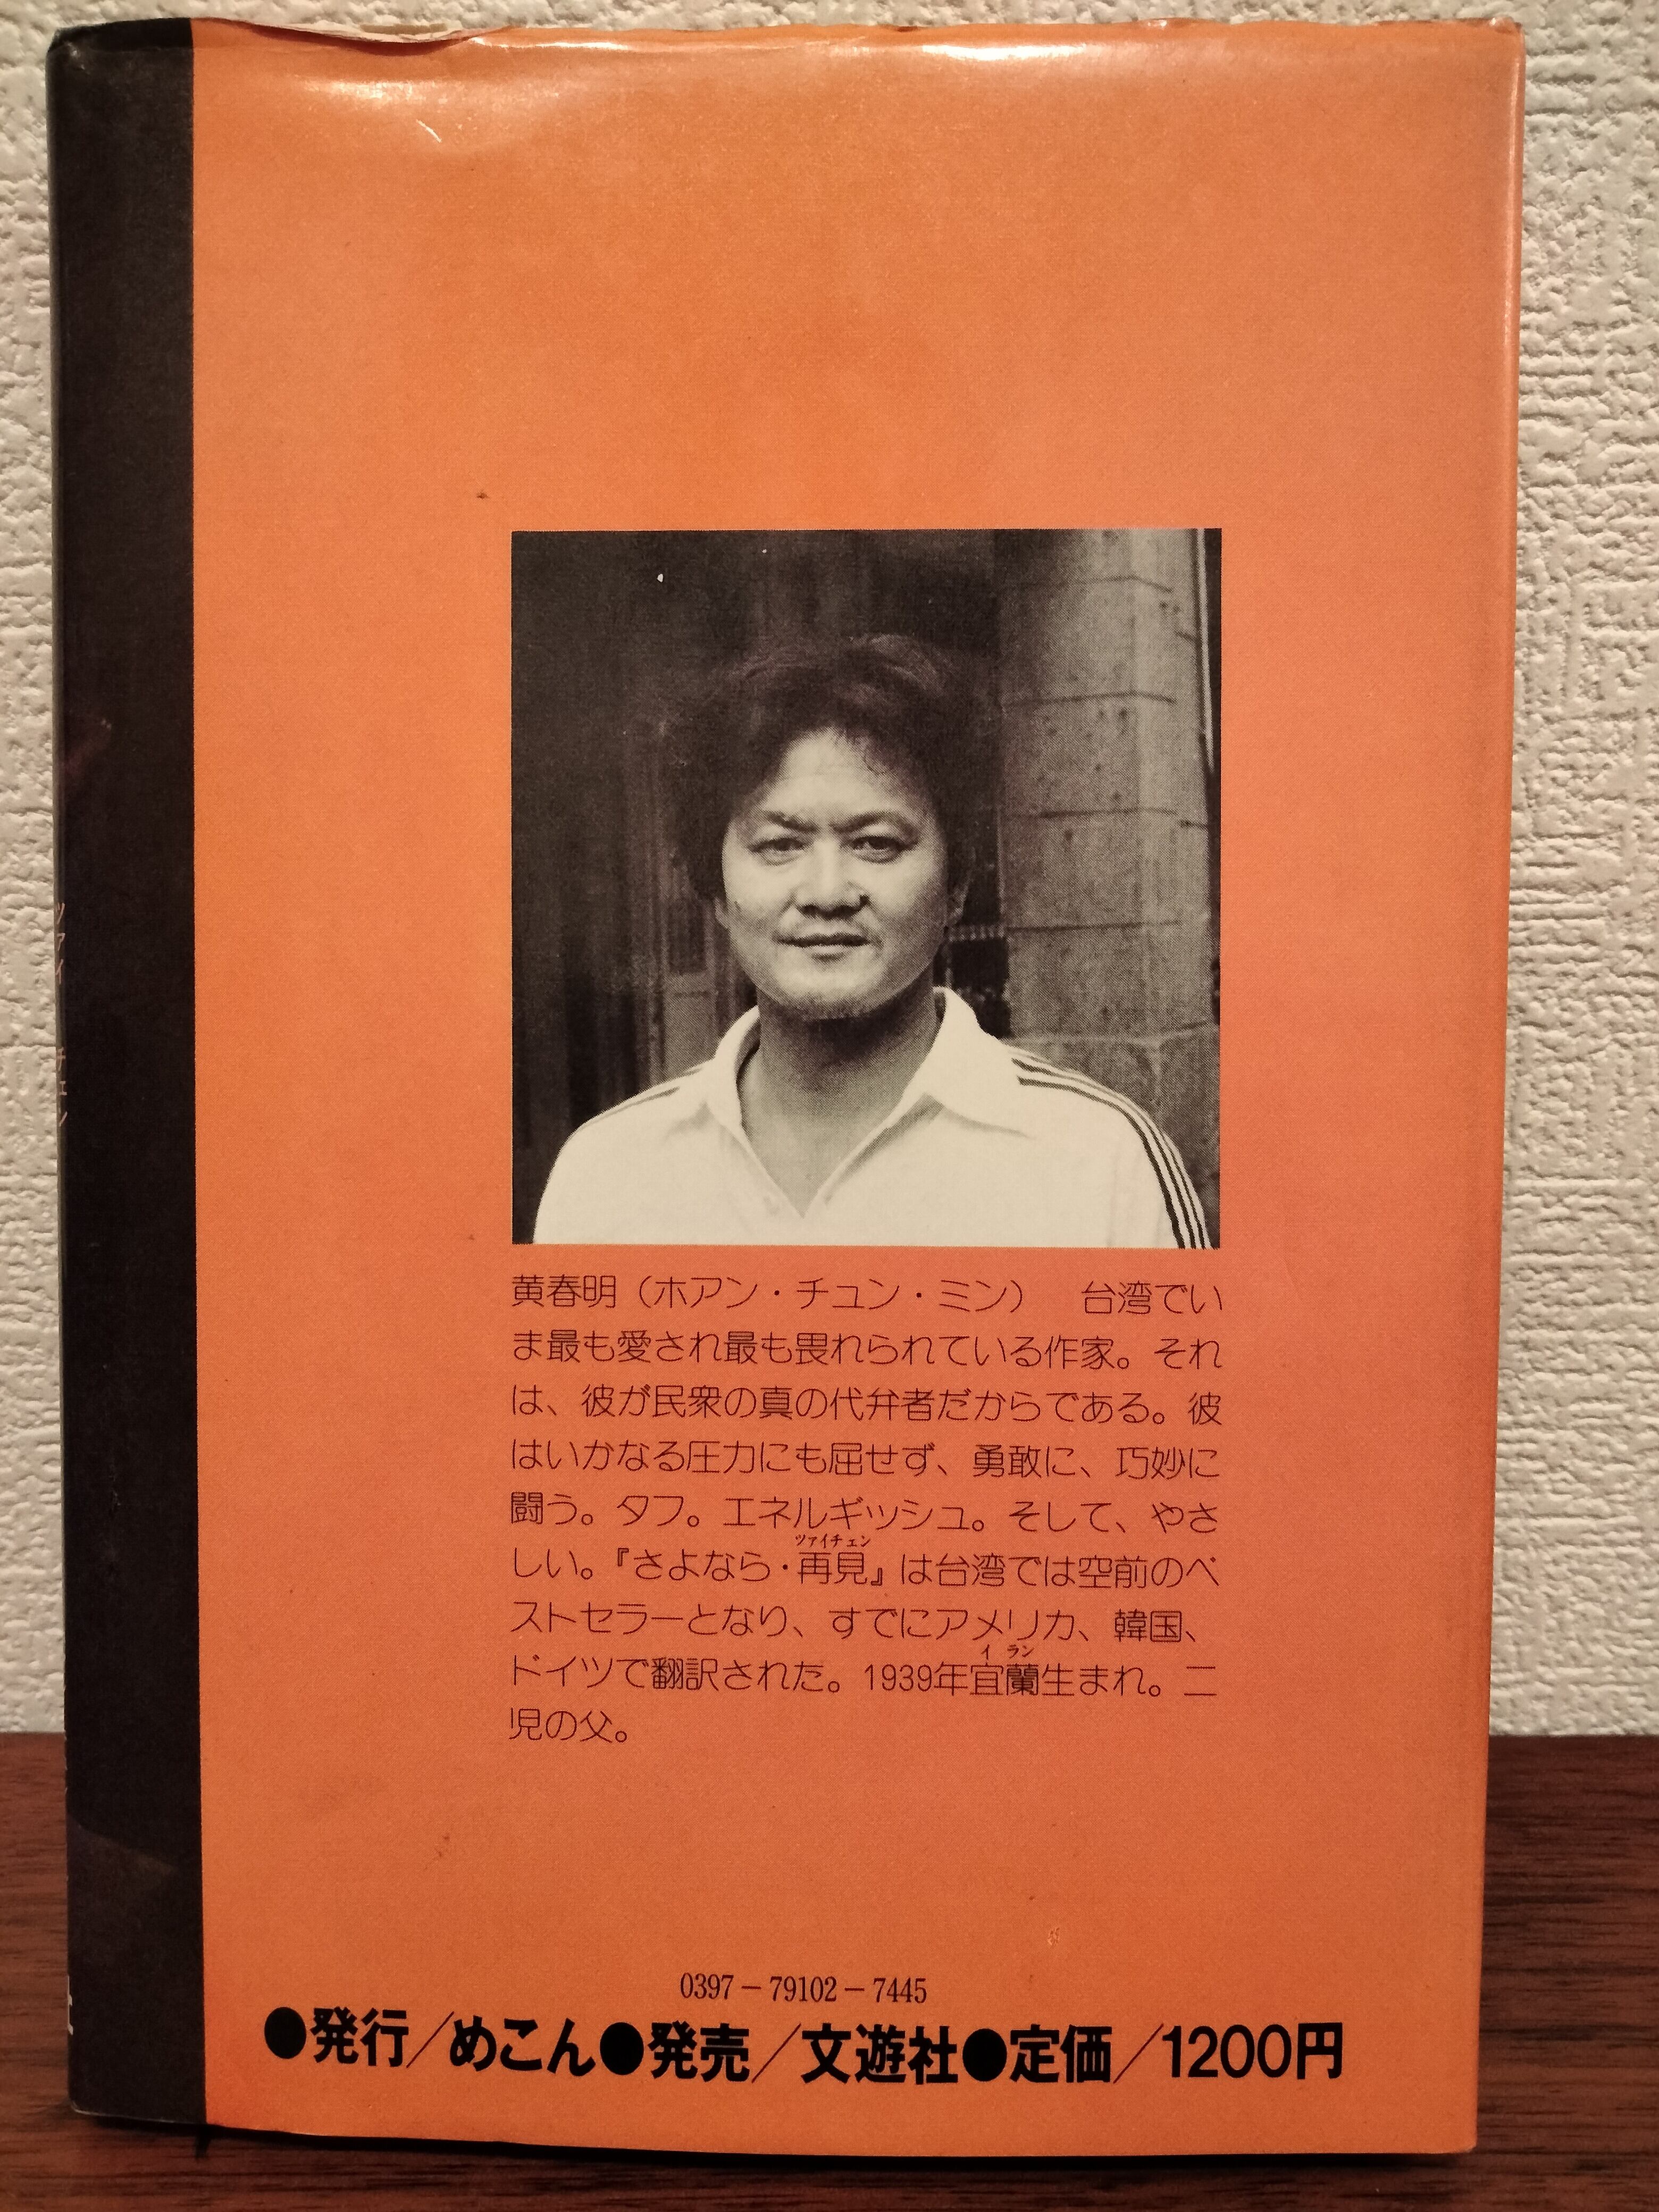 黄春明（ホアン・チュン・ミン）　台湾でい
ま最も愛され最も畏れられている作家。それ
は、彼が民衆の真の代弁者だからである。彼
はいかなる圧力にも屈せず、勇敢に、巧妙に
闘う。タフ。エネルギッシュ。そして、やさ
ツァイチェン
しい。『さよなら・再見』は台湾では空前のベ
ストセラーとなり、すでにアメリカ、韓国、
イ ラン
ドイツで翻訳された。1939年宜蘭生まれ。二
児の父。
0397－79102－7445
●発行／めこん●発売／文遊社●定価／1200円
ツァイ チェン